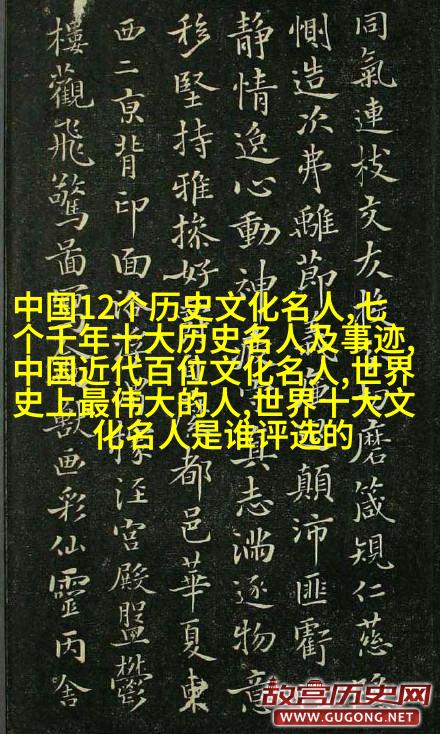 同氣連枝交友磨箴規仁慈隱
惻造次弗離節義顛沛匪虧
靜情逸心動神真志滿逐物意
移堅持雅操好都邑華夏東
西二京背邙面洛據涇宮殿盤鬱
樓觀飛驚圖寫獸画彩仙靈丙舍
中国12个历史文化名人,七
个千年十大历史名人及事迹,
中国近代百位文化名人,世界
史上最伟大的人,世界十大文
化名人是谁评选的
故宫历史网
WWW.GUGONG.NET